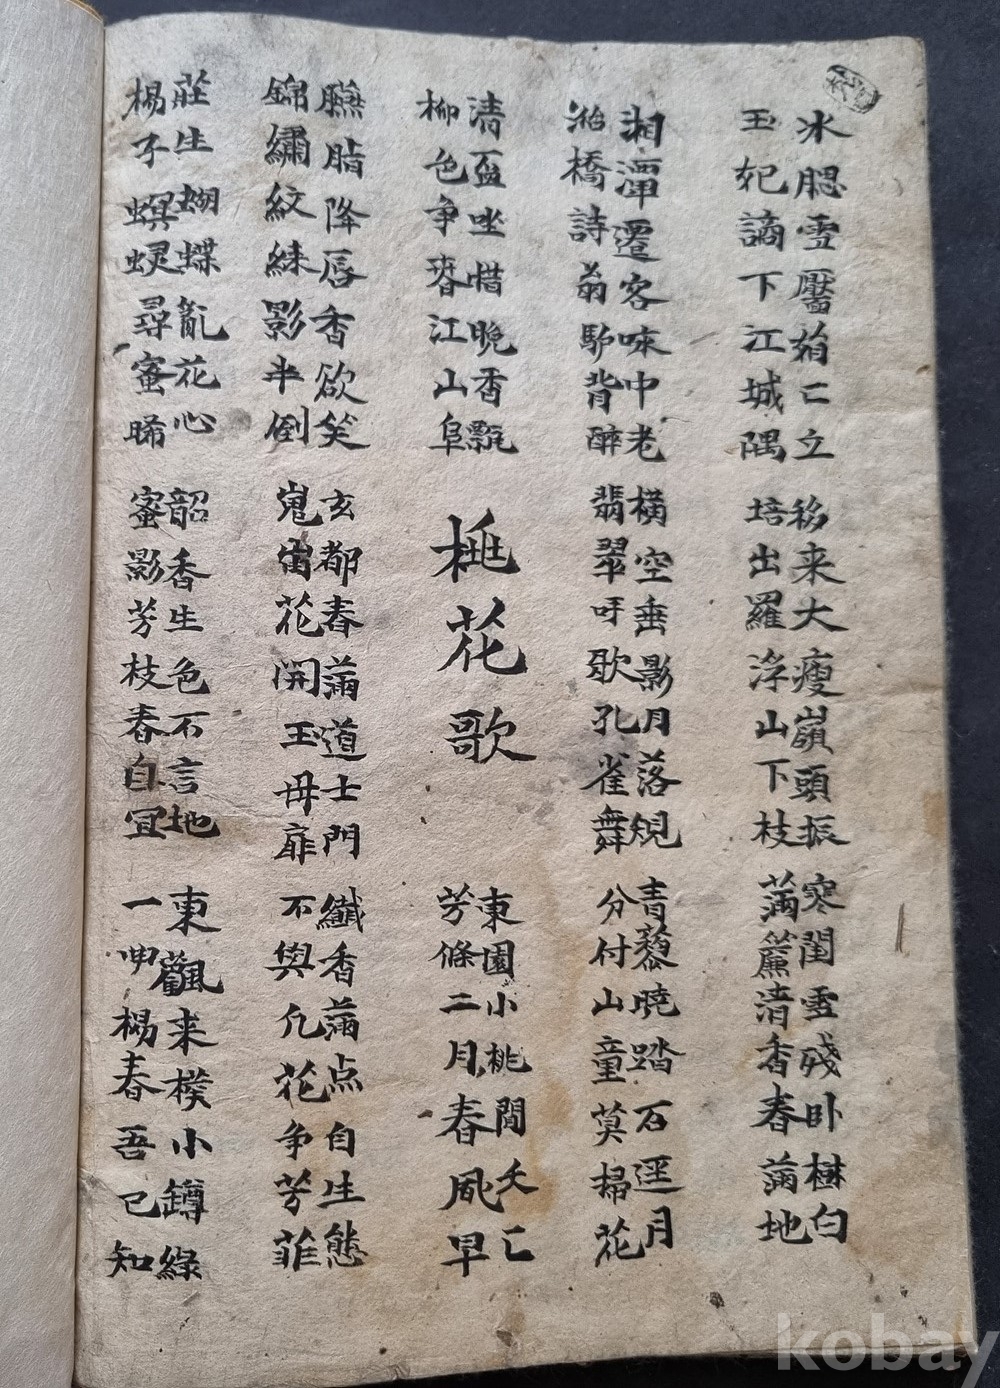 氷腮雪靨娟〻立
玉妃謫下江城隅
移来大瘦嶺頭振
培出羅浮山下枝
寒閨雪殘卧樹白
滿簾清香春滿地
湘潭遷客唻中老
橋詩翁馿背醉
横空垂影月落䂓
翡翠呼歌孔雀舞
青藜曉踏石逕月
分付山童莫掃花
清盃坐惜晩香飄
柳色争春江山阜
桃花歌
東園小桃間夭〻
芳條二月春風早
臙脂降唇香欲笑
錦繡紋練影半倒
玄都春滿道士門
嵬宙花開王母扉
纖香滿点自生態
不與凡花争芳菲
莊生蝴蝶亂花心
楊子螟蛉尋蜜睎
韶香生色不言地
蜜影芳枝春自宜
東来小罇綠
一呻楊春吾已知
kobay